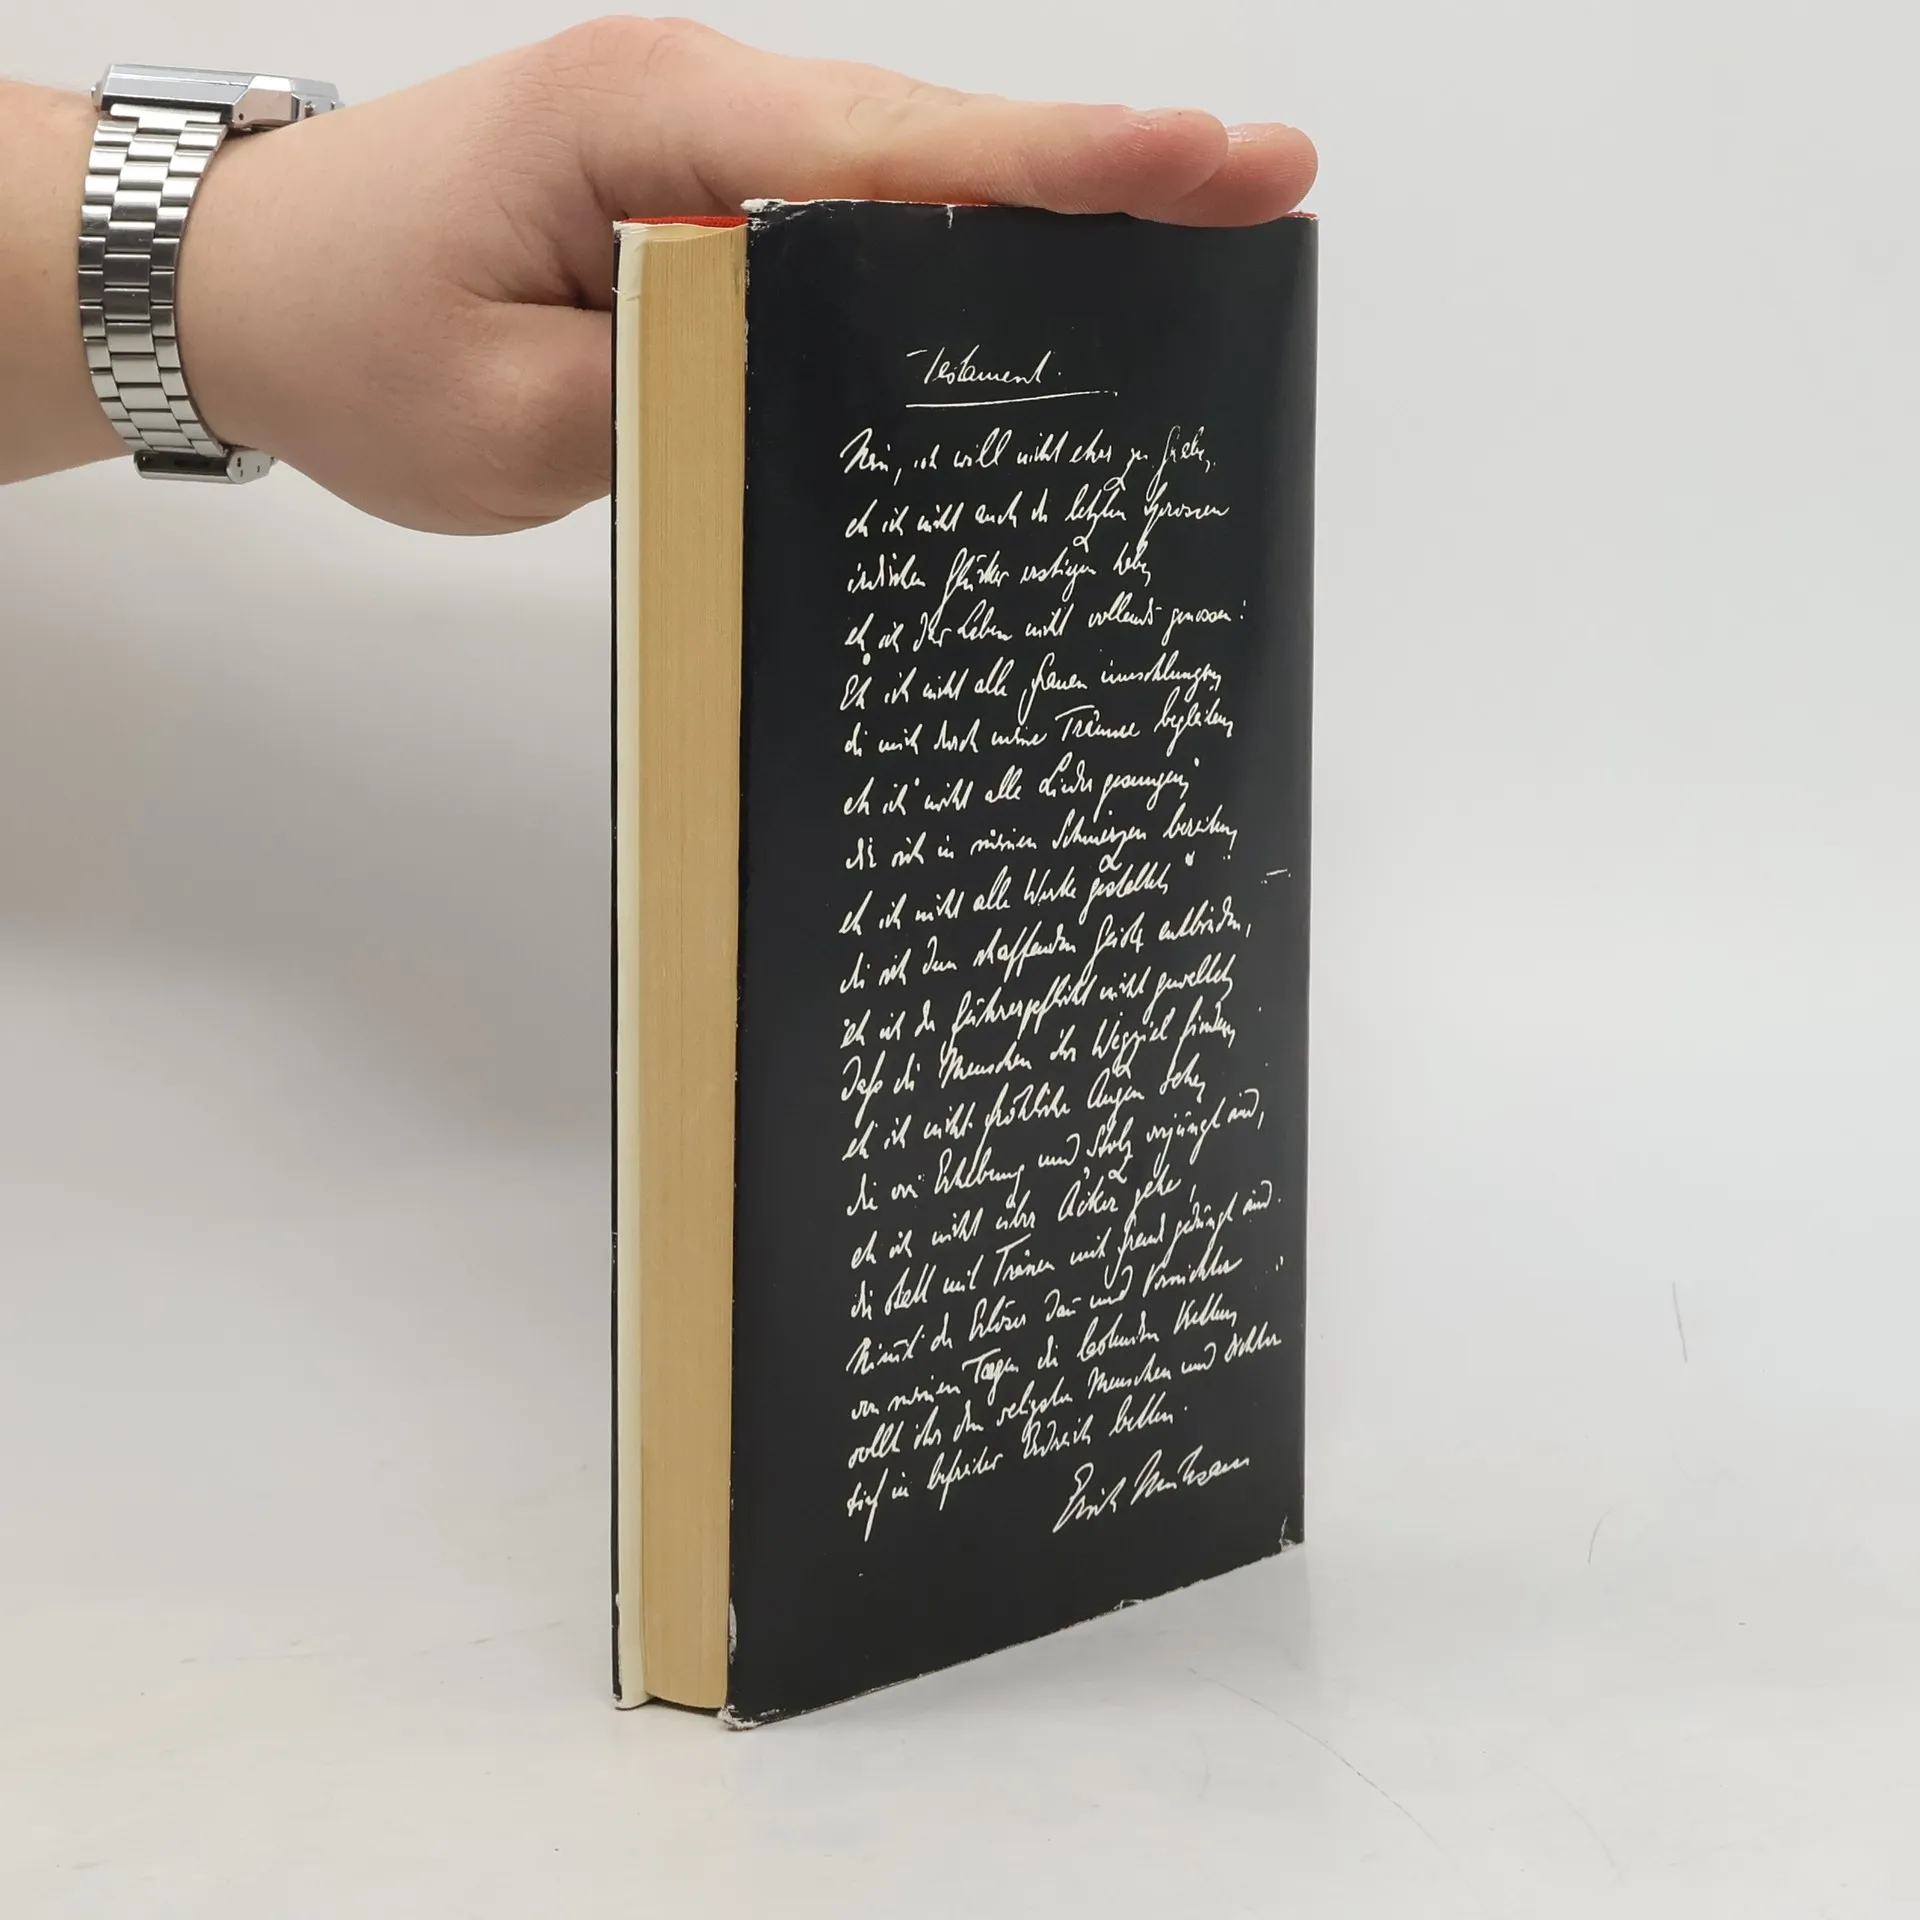 Testament.
Nein, ich will nicht eher zu Grabe,
eh ich nicht auch die letzten Sprossen
irdischen Glückes erstiegen habe,
eh ich das Leben nicht vollends genossen:
Eh ich nicht alle Frauen umschlungen,
die mich durch meine Träume begleiten,
eh ich nicht alle Lieder gesungen,
die sich in meinen Schmerzen bereiten,
eh ich nicht alle Werke gestaltet,
die sich dem schaffenden Geiste entbinden,
eh ich der Führerpflicht nicht gewaltet,
daß die Menschen ihr Wegziel finden,
eh ich nicht fröhliche Augen sehe,
die von Erhebung und Stolz verjüngt sind,
eh ich nicht über Äcker gehe,
die statt mit Tränen mit Freude gedüngt sind.
Nimmt der Erlöser dann und Vernichter
von meinen Tagen die lastenden Ketten,
sollt ihr den seligsten Menschen und Dichter
tief in befreiter Erdreich betten.
Erich Mühsam